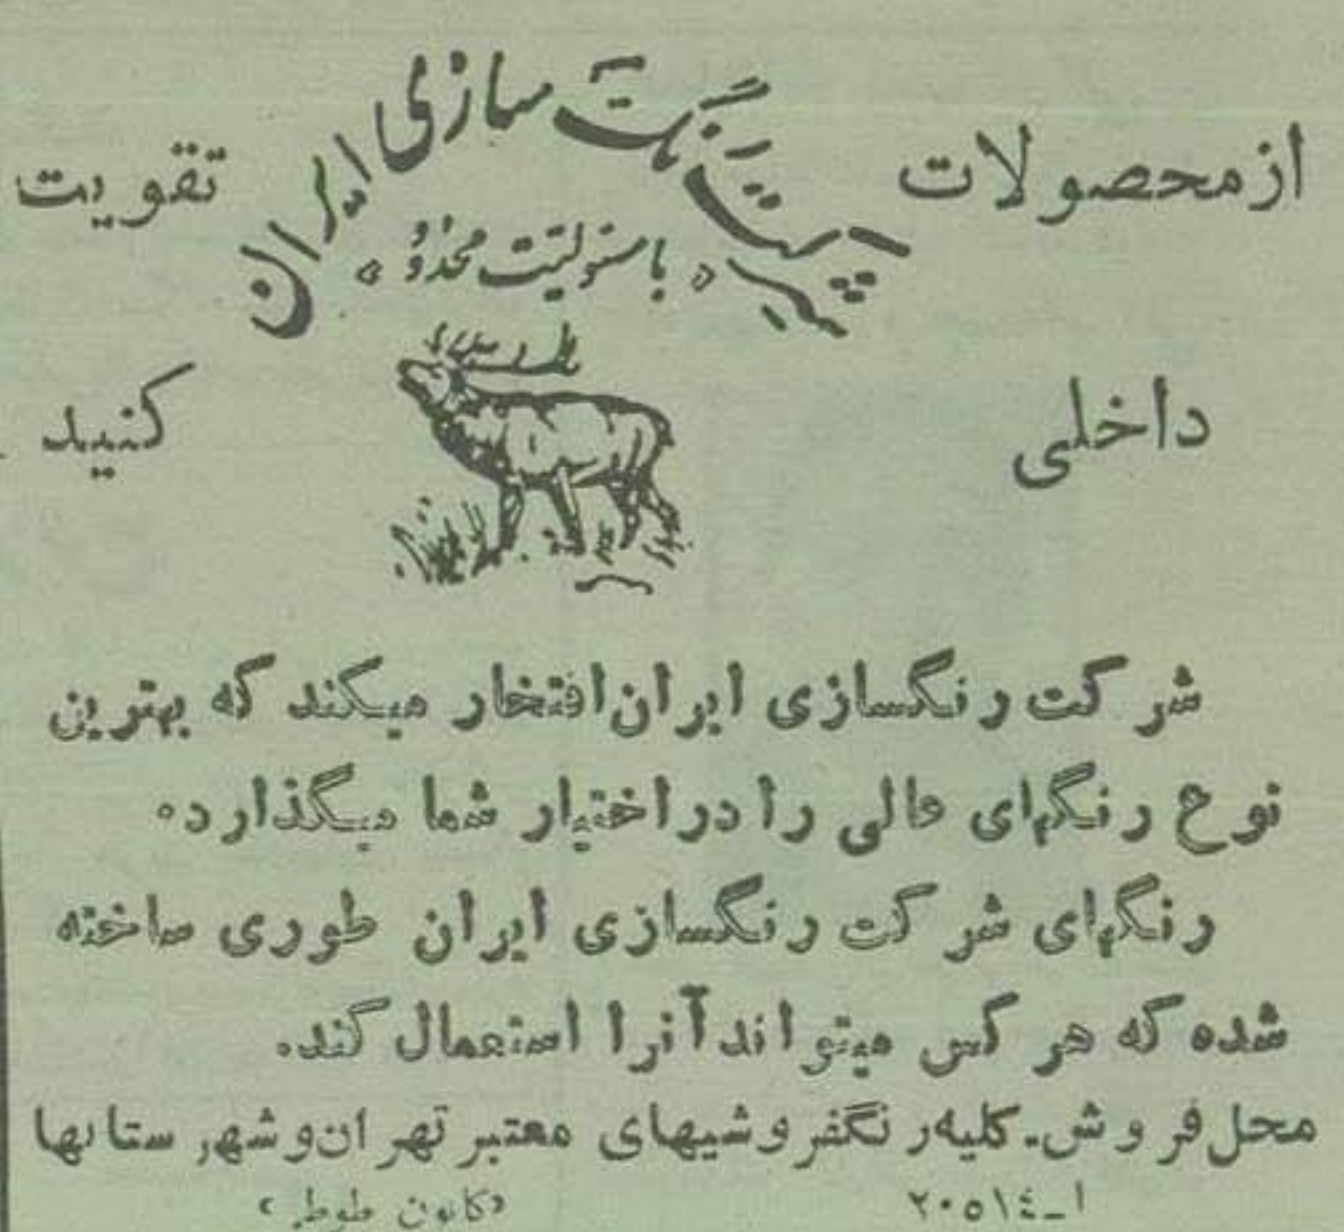 از محصولات
داخلی
شرکت رنگ سازی ایران
«با مسئولیت محدود»
تقویت
کنید
شرکت رنگسازی ایران افتخار میکند که بهترین
نوع رنگهای عالی را در اختیار شما میگذارد.
رنگهای شرکت رنگسازی ایران طوری ساخته
شده که هر کس میتواند آنرا استعمال کند.
محل فروش-کلیه رنگفروشیهای معتبر تهران و شهرستانها
۲۰۵۱٤-۱
«کانون